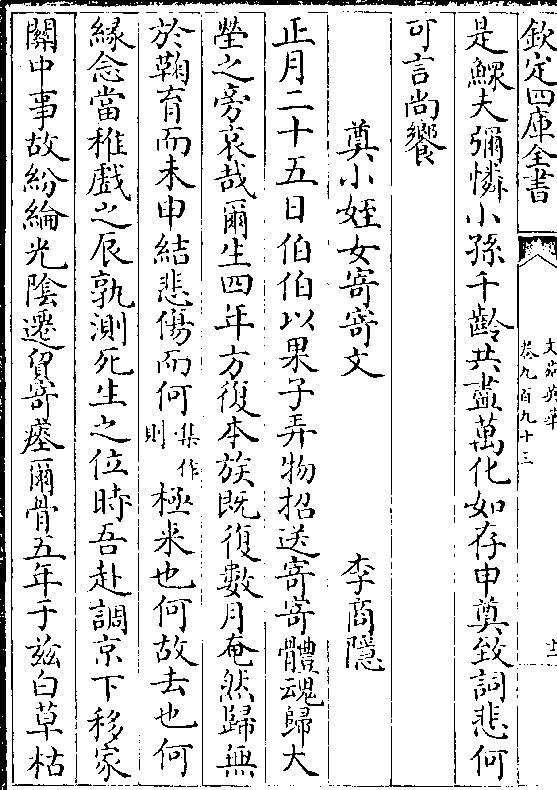 欽定四庫全書
文苑英華
卷九百九十三
十二
是鰥夫彌憐小孫千齡共盡萬化如存申奠致詞悲何
可言尚饗
奠小姪女寄寄文 李商隱
正月二十五日伯伯以果子弄物招送寄寄體魂歸大
塋之旁哀哉爾生四年方復本族既復數月奄然歸無
於鞠育而未申結悲傷而何集作則極来也何故去也何
縁念當稚戲之辰孰測死生之位時吾赴調京下移家
關中事故紛綸光陰遷貿寄瘞爾骨五年于兹白草枯